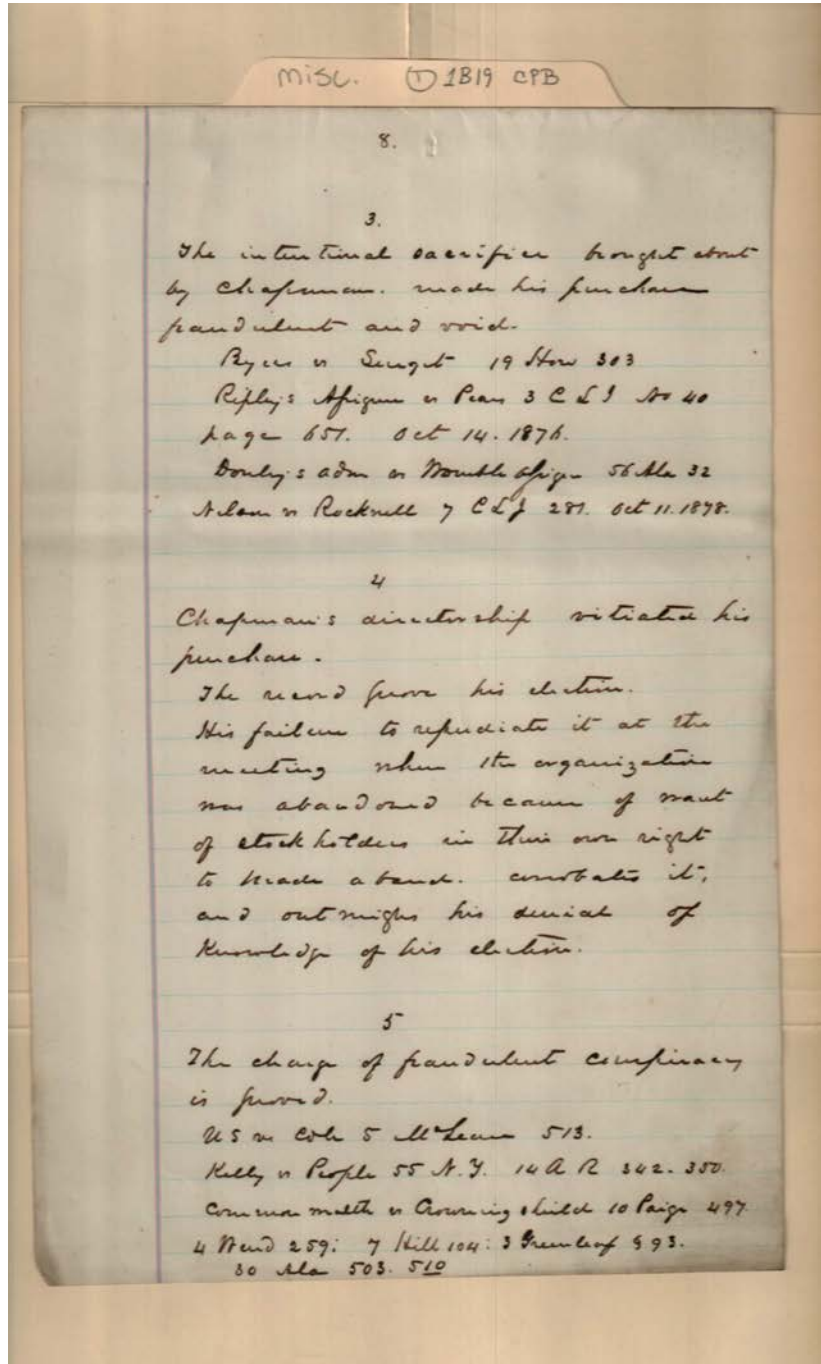 misc. T 1B19 CPB
8.
3.
The intentional sacrifice brought about
by Chapman. made his purchase
fraudulent and void.
Byers vs Surget 19 How 303
Ripley's Assignee vs 3 C L J No 40
page 651. Oct 14. 1876.
Donley's adm vs Womble 56 Ala 32
Nelson vs Rockwell 7 C L J 281. Oct 11. 1878.
4
Chapman's directorship vitiated his
purchase.
The record prove his election.
His failure to repudiate it at the
meeting when the organization
was abandoned because of want
of stockholders in their own right
to made a board. it,
and outweighs his denial of
Knowledge of his election.
5
The charge of fraudulent conspiracy
is proved.
U S vs Cole 5 McLean 513.
Kelly vs People 55 N. Y. 14 A R 342. 350.
Commonwealth vs Crowningshield 10 Paige 497
4 Wend 259: 7 Hill 104: 3 Greenleaf § 93.
30 Ala 503. 510